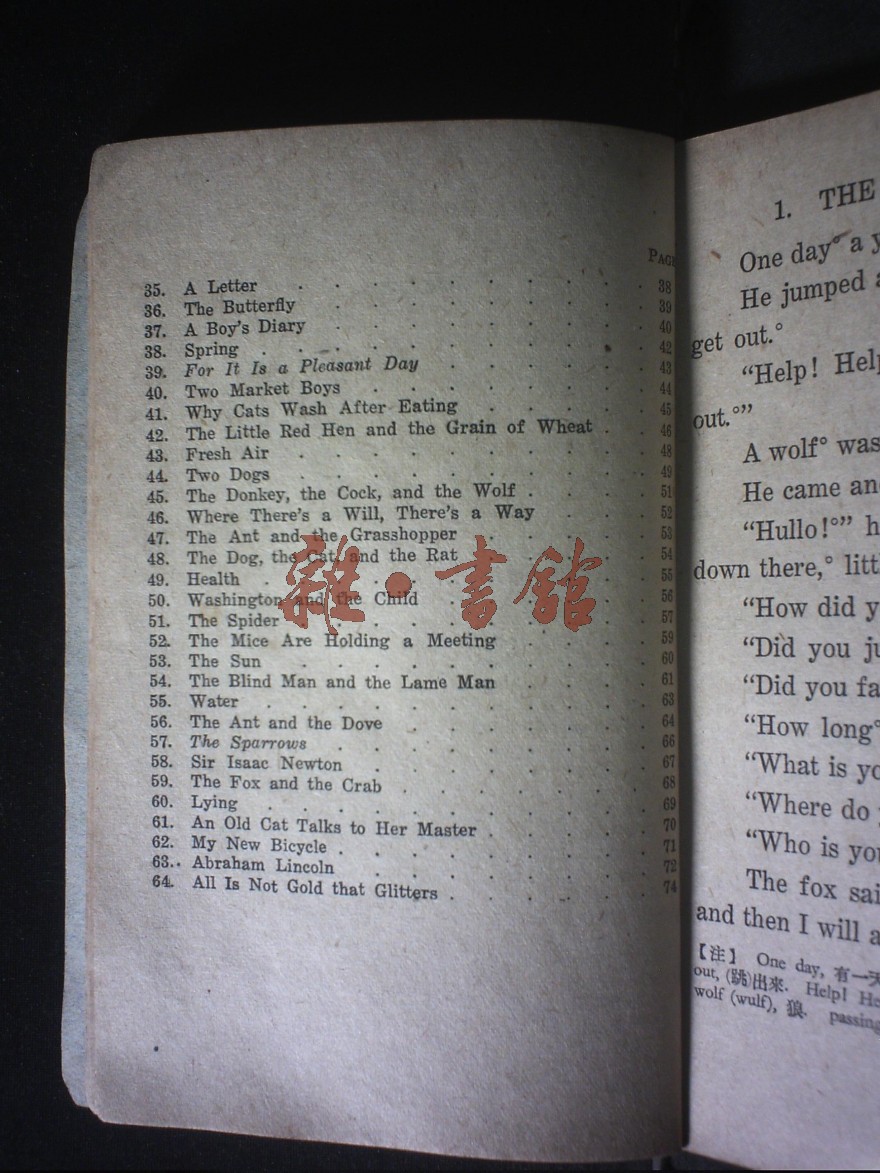 PAGE
35. A Letter . . . . . . . . . 38
36. The Butterfly . . . . . . . . 39
37. A Boy's Diary . . . . . . . . 40
38. Spring . . . . . . . . . . 42
39. For It Is a Pleasant Day . . . . . 43
40. Two Market Boys . . . . . . . 44
41. Why Cats Wash After Eating . . . . 45
42. The Little Red Hen and the Grain of Wheat . 46
43. Fresh Air . . . . . . . . . 48
44. Two Dogs . . . . . . . . . 49
45. The Donkey, the Cock, and the Wolf . . . 51
46. Where There's a Will, There's a Way . . . 52
47. The Ant and the Grasshopper . . . . 53
48. The Dog, the Cat, and the Rat . . . . 54
49. Health . . . . . . . . . . 55
50. Washington and the Child . . . . . 56
51. The Spider . . . . . . . . . 57
52. The Mice Are Holding a Meeting . . . . 59
53. The Sun . . . . . . . . . 60
54. The Blind Man and the Lame Man . . . . 61
55. Water . . . . . . . . . . 63
56. The Ant and the Dove . . . . . . 64
57. The Sparrows . . . . . . . . 66
58. Sir Isaac Newton . . . . . . . 67
59. The Fox and the Crab . . . . . . 68
60. Lying . . . . . . . . . . 69
61. An Old Cat Talks to Her Master . . . . 70
62. My New Bicycle . . . . . . . . 71
63. Abraham Lincoln . . . . . . . 72
64. All Is Not Gold that Glitters . . . . . 74
雜·書館
1. THE
One day° a
He jumped
get out.°
"Help! Help
out.°"
A wolf° was
He came
"Hullo!°"
down there,°
"How did
"Did you
"Did you
"How long°
"What is
"Where do
"Who is
The fox
and then I will
【注】 One day, 有一天
out, (跳)出來. Help!
wolf (wulf), 狼. passing